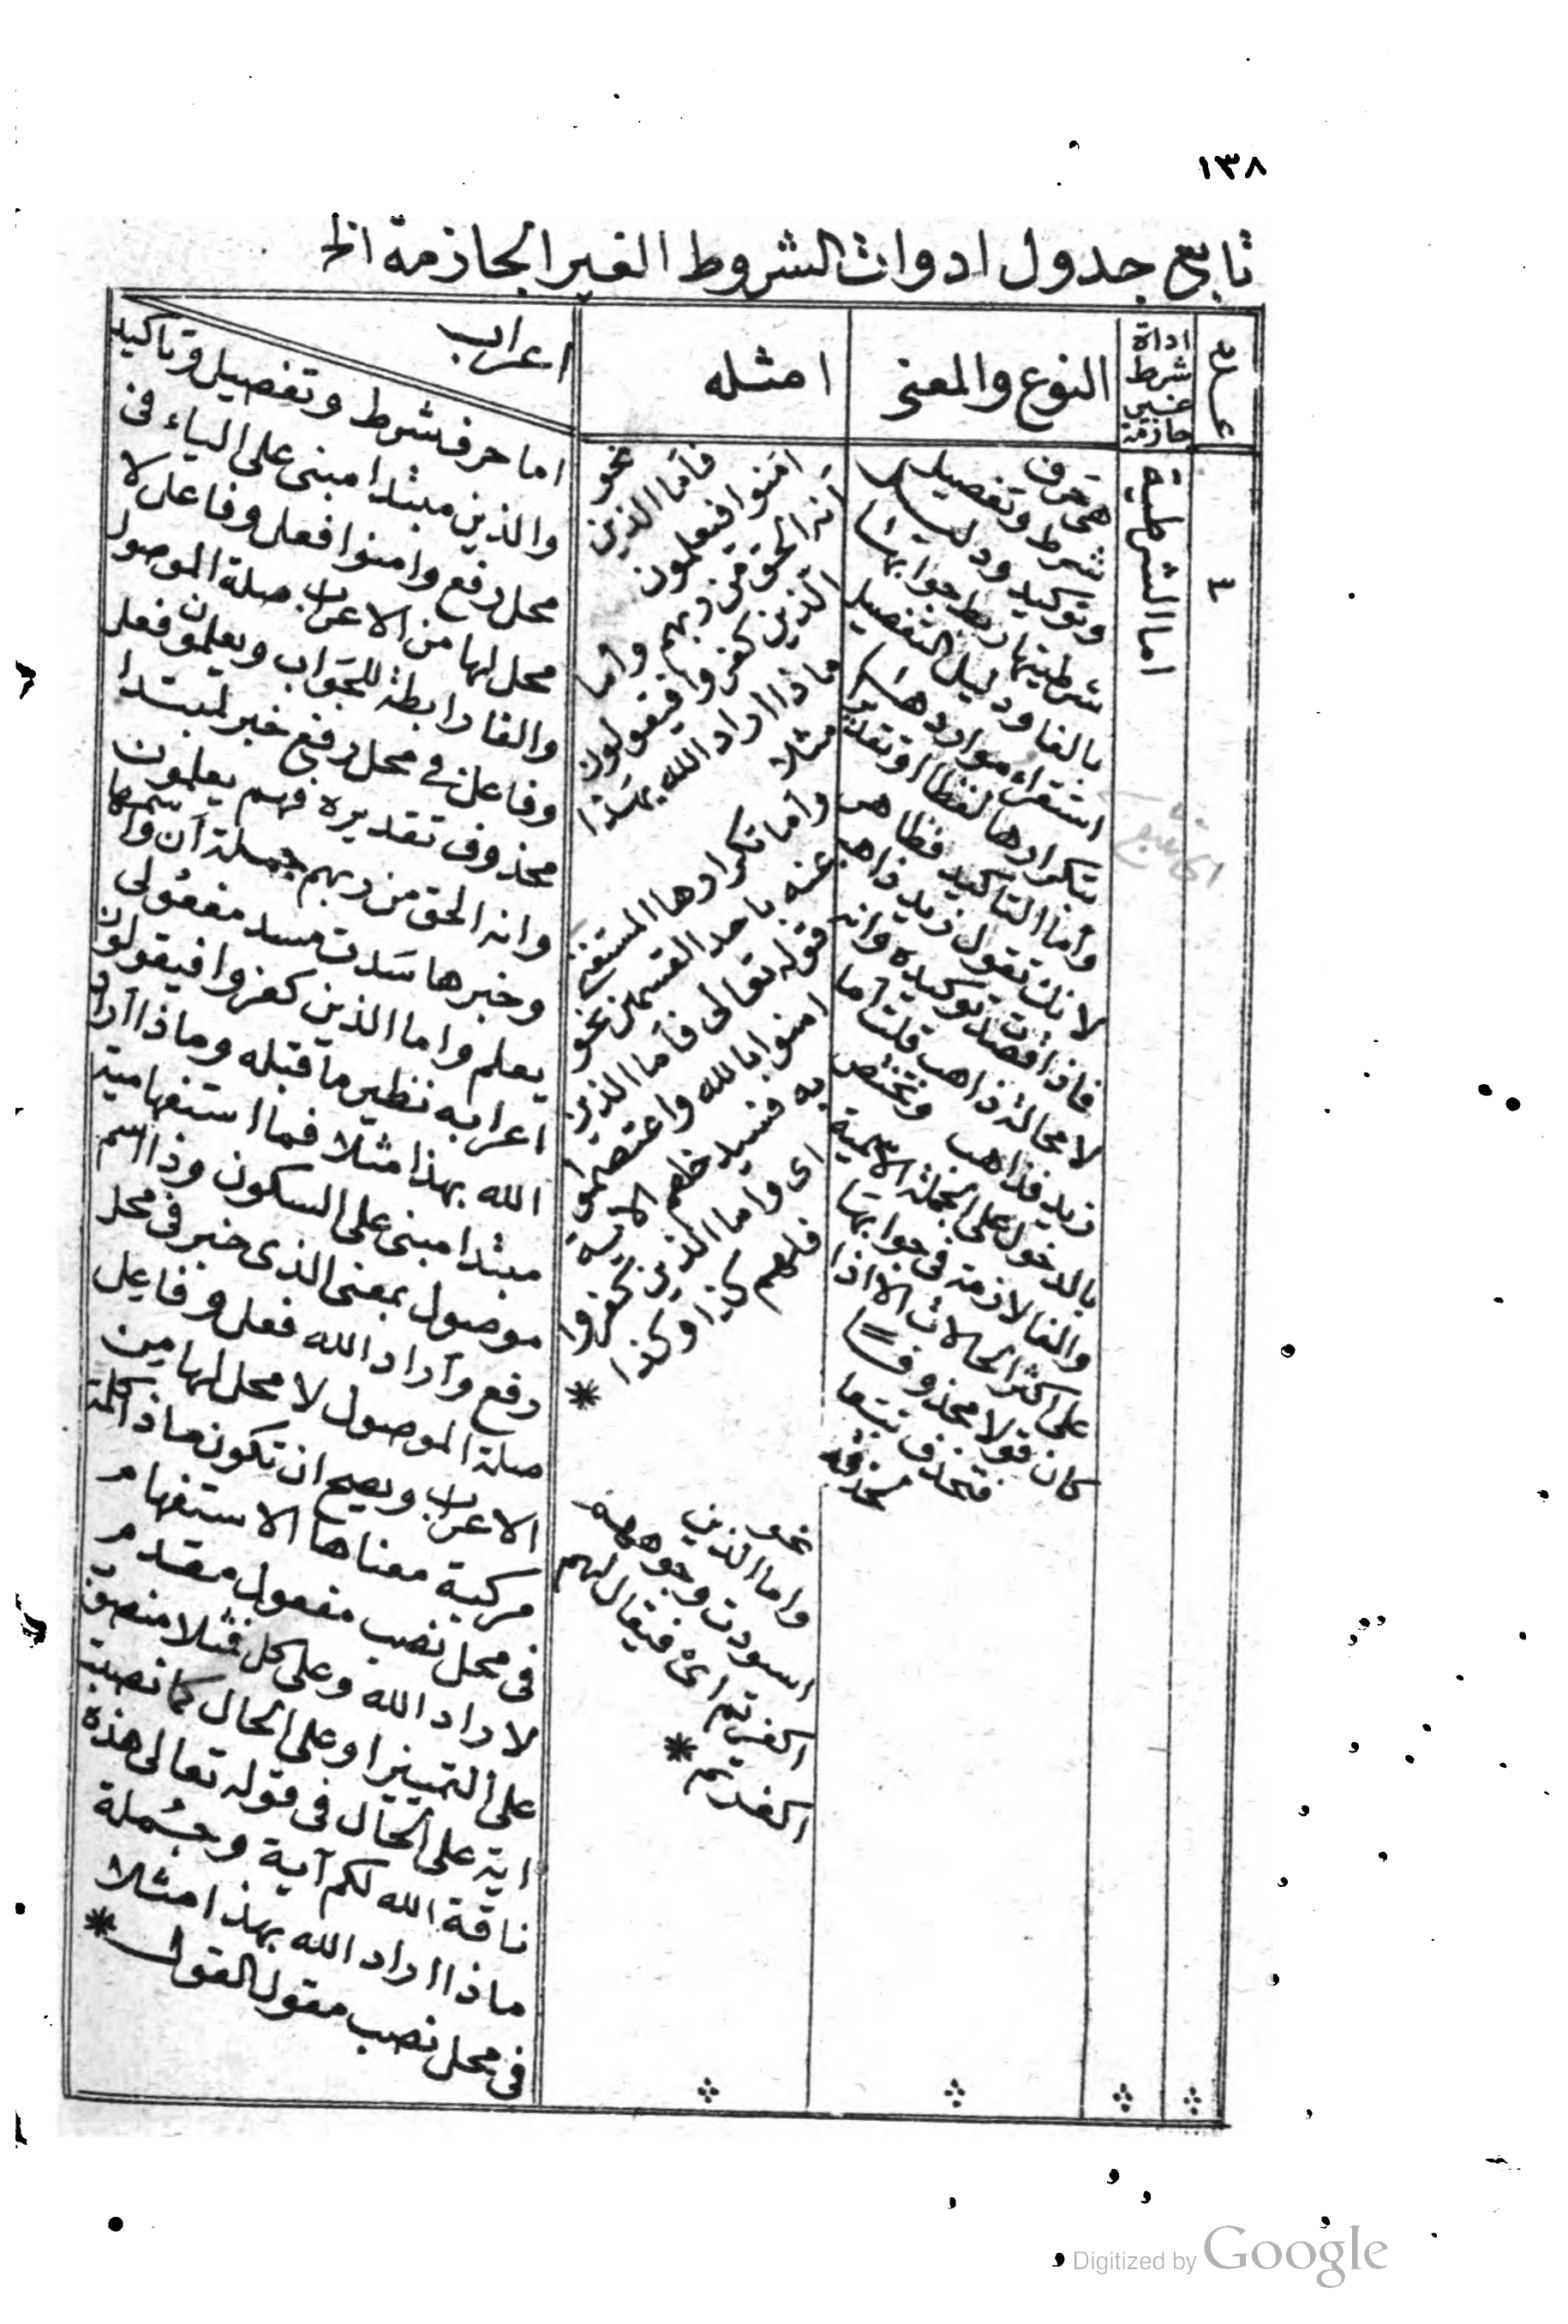 ١٣٨
تابع جدول ادوات الشروط الغير الجازمة الخ
عدد
اداة
شرط
غير
جازمة
النوع والمعنى
امثله
اعراب
٤
اما الشرطية
هى حرف
شرط وتفصيل
وتوكيد ودليل
شرطيتها ربط جوابها
بالفا ودليل التفصيل
استقراء مواردها
بتكرارها لفظا او تقديرا
واما التاكيد فظاهر
لانك تقول زيد ذاهب
فاذا قصدت توكيده وانه
لا محالة ذاهب قلت اما
زيد فذاهب وتختص
بالدخول على الجملة الاسمية
والفا لازمة فى جوابها
على اكثر الحالات الا اذا
كان قولا محذوفا
فتحذف تبعا
لحذفه
نحو
فاما الذين
امنوا فيعلمون
انه الحق من ربهم واما
الذين كفروا فيقولون
ماذا اراد الله بهذا
مثلا
واما تكرارها المستغنى
عنه باحد القسمين نحو
قوله تعالى فاما الذين
امنوا بالله واعتصموا
به فسيدخلهم الاية
اى واما الذين كفروا
فلهم كذا وكذا *
نحو
واما الذين
اسودت وجوههم
اكفرتم اى فيقال لهم
اكفرتم *
اما حرف شرط وتفصيل وتاكيد
والذين مبتدا مبنى على الياء فى
محل رفع وامنوا فعل وفاعل لا
محل لها من الاعراب صلة الموصول
والفا رابطة للجواب ويعلمون فعل
وفاعل فى محل رفع خبر لمبتدا
محذوف تقديره فهم يعلمون
وانه الحق من ربهم جملة ان واسمها
وخبرها سدت مسد مفعولى
يعلم واما الذين كفروا فيقولون
اعرابه نظير ما قبله وماذا اراد
الله بهذا مثلا فما استفهامية
مبتدا مبنى على السكون وذا اسم
موصول بمعنى الذى خبر فى محل
رفع واراد الله فعل وفاعل
صلة الموصول لا محل لها من
الاعراب ويصح ان تكون ماذا كلمة
مركبة معناها الاستفهام
فى محل نصب مفعول مقدم
لاراد الله وعلى كل فمثلا منصوب
على التمييز او على الحال كما نصبت
اية على الحال فى قوله تعالى هذه
ناقة الله لكم آية وجملة
ماذا اراد الله بهذا مثلا
فى محل نصب مقول القول *
Digitized by Google